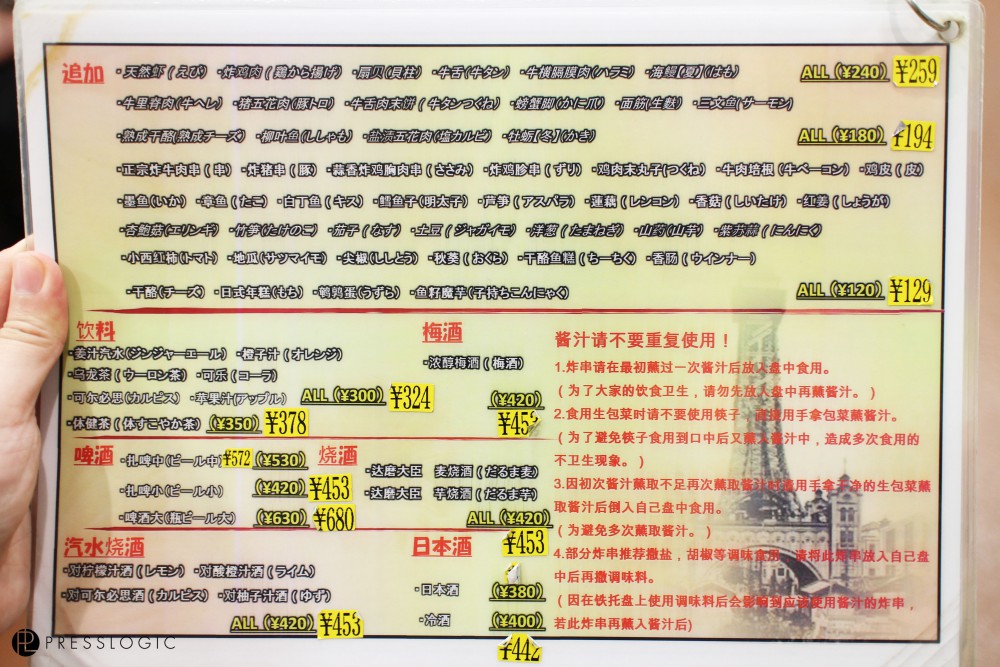 追加 ・天然虾(えび) ・炸鸡肉(鶏から揚げ) ・扇贝(貝柱) ・牛舌(牛タン) ・牛横膈膜肉(ハラミ) ・海鳗【夏】(はも) ALL(¥240) ¥259
・牛里脊肉(牛ヘレ) ・猪五花肉(豚トロ) ・牛舌肉末饼(牛タンつくね) ・螃蟹脚(かに爪) ・面筋(生麩) ・三文鱼(サーモン)
・熟成干酪(熟成チーズ) ・柳叶鱼(ししゃも) ・盐渍五花肉(塩カルビ) ・牡蛎【冬】(かき) ALL(¥180) ¥194
・正宗炸牛肉串(串) ・炸猪串(豚) ・蒜香炸鸡胸肉串(ささみ) ・炸鸡胗串(ずり) ・鸡肉末丸子(つくね) ・牛肉培根(牛ベーコン) ・鸡皮(皮)
・墨鱼(いか) ・章鱼(たこ) ・白丁鱼(キス) ・鳕鱼子(明太子) ・芦笋(アスパラ) ・莲藕(レンコン) ・香菇(しいたけ) ・红姜(しょうが)
・杏鲍菇(エリンギ) ・竹笋(たけのこ) ・茄子(なす) ・土豆(ジャガイモ) ・洋葱(たまねぎ) ・山药(山芋) ・紫苏蒜(にんにく)
・小西红柿(トマト) ・地瓜(サツマイモ) ・尖椒(ししとう) ・秋葵(おくら) ・干酪鱼糕(ちーちく) ・香肠(ウインナー)
・干酪(チーズ) ・日式年糕(もち) ・鹌鹑蛋(うずら) ・鱼籽魔芋(子持ちこんにゃく) ALL(¥120) ¥129
饮料
・姜汁汽水(ジンジャーエール) ・橙子汁(オレンジ)
・乌龙茶(ウーロン茶) ・可乐(コーラ)
・可尔必思(カルピス) ・苹果汁(アップル) ALL(¥300) ¥324
・体健茶(体すこやか茶) (¥350) ¥378
梅酒
・浓醇梅酒(梅酒)
(¥420)
啤酒 ・扎啤中(ビール中) ¥572 (¥530)
・扎啤小(ビール小) (¥420) ¥453
・啤酒大(瓶ビール大) (¥630) ¥680
烧酒
・达磨大臣 麦烧酒(だるま麦)
・达磨大臣 芋烧酒(だるま芋)
ALL(¥420)
¥453
汽水烧酒
・对柠檬汁酒(レモン) ・对酸橙汁酒(ライム)
・对可尔必思酒(カルピス) ・对柚子汁酒(ゆず)
ALL(¥420) ¥453
日本酒
・日本酒 (¥380)
・冷酒 (¥400)
¥442
酱汁请不要重复使用!
1.炸串请在最初蘸过一次酱汁后放入盘中食用。
(为了大家的饮食卫生,请勿先放入盘中再蘸酱汁。)
2.食用生包菜时请不要使用筷子,请使用手拿包菜蘸酱汁。
(为了避免筷子食用到口中后又蘸入酱汁中,造成多次食用的
不卫生现象。)
3.因初次酱汁蘸取不足再次蘸取酱汁时请用手拿干净的生包菜蘸
取酱汁后倒入自己盘中食用。
(为避免多次蘸取酱汁。)
4.部分炸串推荐撒盐,胡椒等调味食用,请将此炸串放入自己盘
中后再撒调味料。
(因在铁托盘上使用调味料后会影响到应该使用酱汁的炸串,
若此炸串再蘸入酱汁后)
PRESSLOGIC